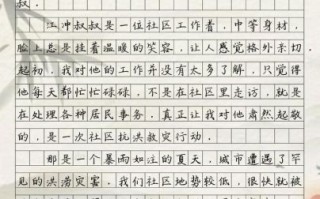 叔。
王冲叔叔是一位社区工作者，中等身材，
脸上总是挂着温暖的笑容，让人感觉格外亲切。
起初，我对他的工作并没有太多了解，只觉得
他每天都忙忙碌碌，不是在社区里走访，就是
在处理各种居民事务。真正让我对他肃然起敬
的，是一次社区抗洪救灾行动。
那是一个暴雨如注的夏天，城市遭遇了罕
见的洪涝灾害。我们社区地势较低，很快就被